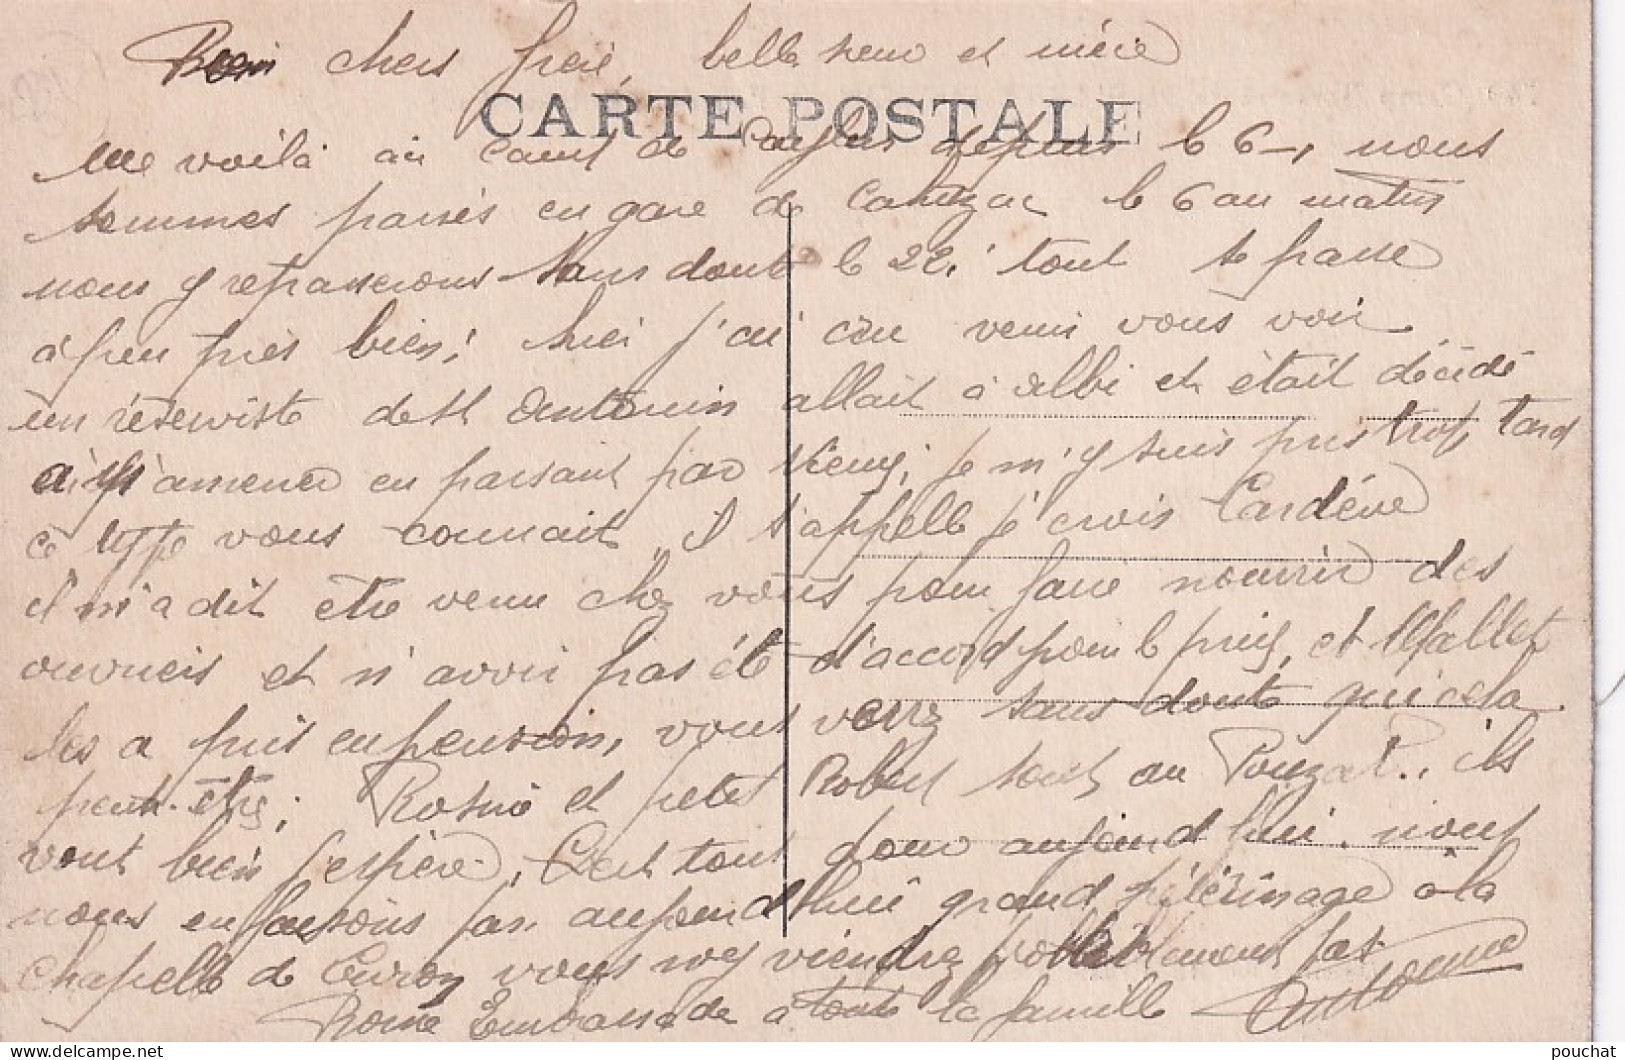 Bien chers frère, belle seur et nièce
CARTE POSTALE
me voilà au camp de Caylus depuis le 6, nous
sommes passés en gare de Cahuzac le 6 au matin
nous y repasserons sans doute le 22, tout se passe
à peu près bien; hier j'ai cru venir vous voir
un réserviste de St Antonin allait à Albi et était décidé
à m'amener en passant par ; je m'y suis pris trop tard
ce type vous connait, il s'appelle je crois Cardéne
il m'a dit être venu chez vous pour faire nourrir des
ouvriers et n'avoir pas été d'accord pour le prix, et Mallet
les a pris en pension, vous verrez sans doute qui cela
peut-être; et petit Robert sont au Pouzat. ils
vont bien j'espère. C'est tout pour aujourd'hui. nous
nous en faisons pas aujourd'hui grand pélérinage à la
chapelle de vous n'y viendrez probablement pas
Embrassade à toute la famille Antonin
pouchat